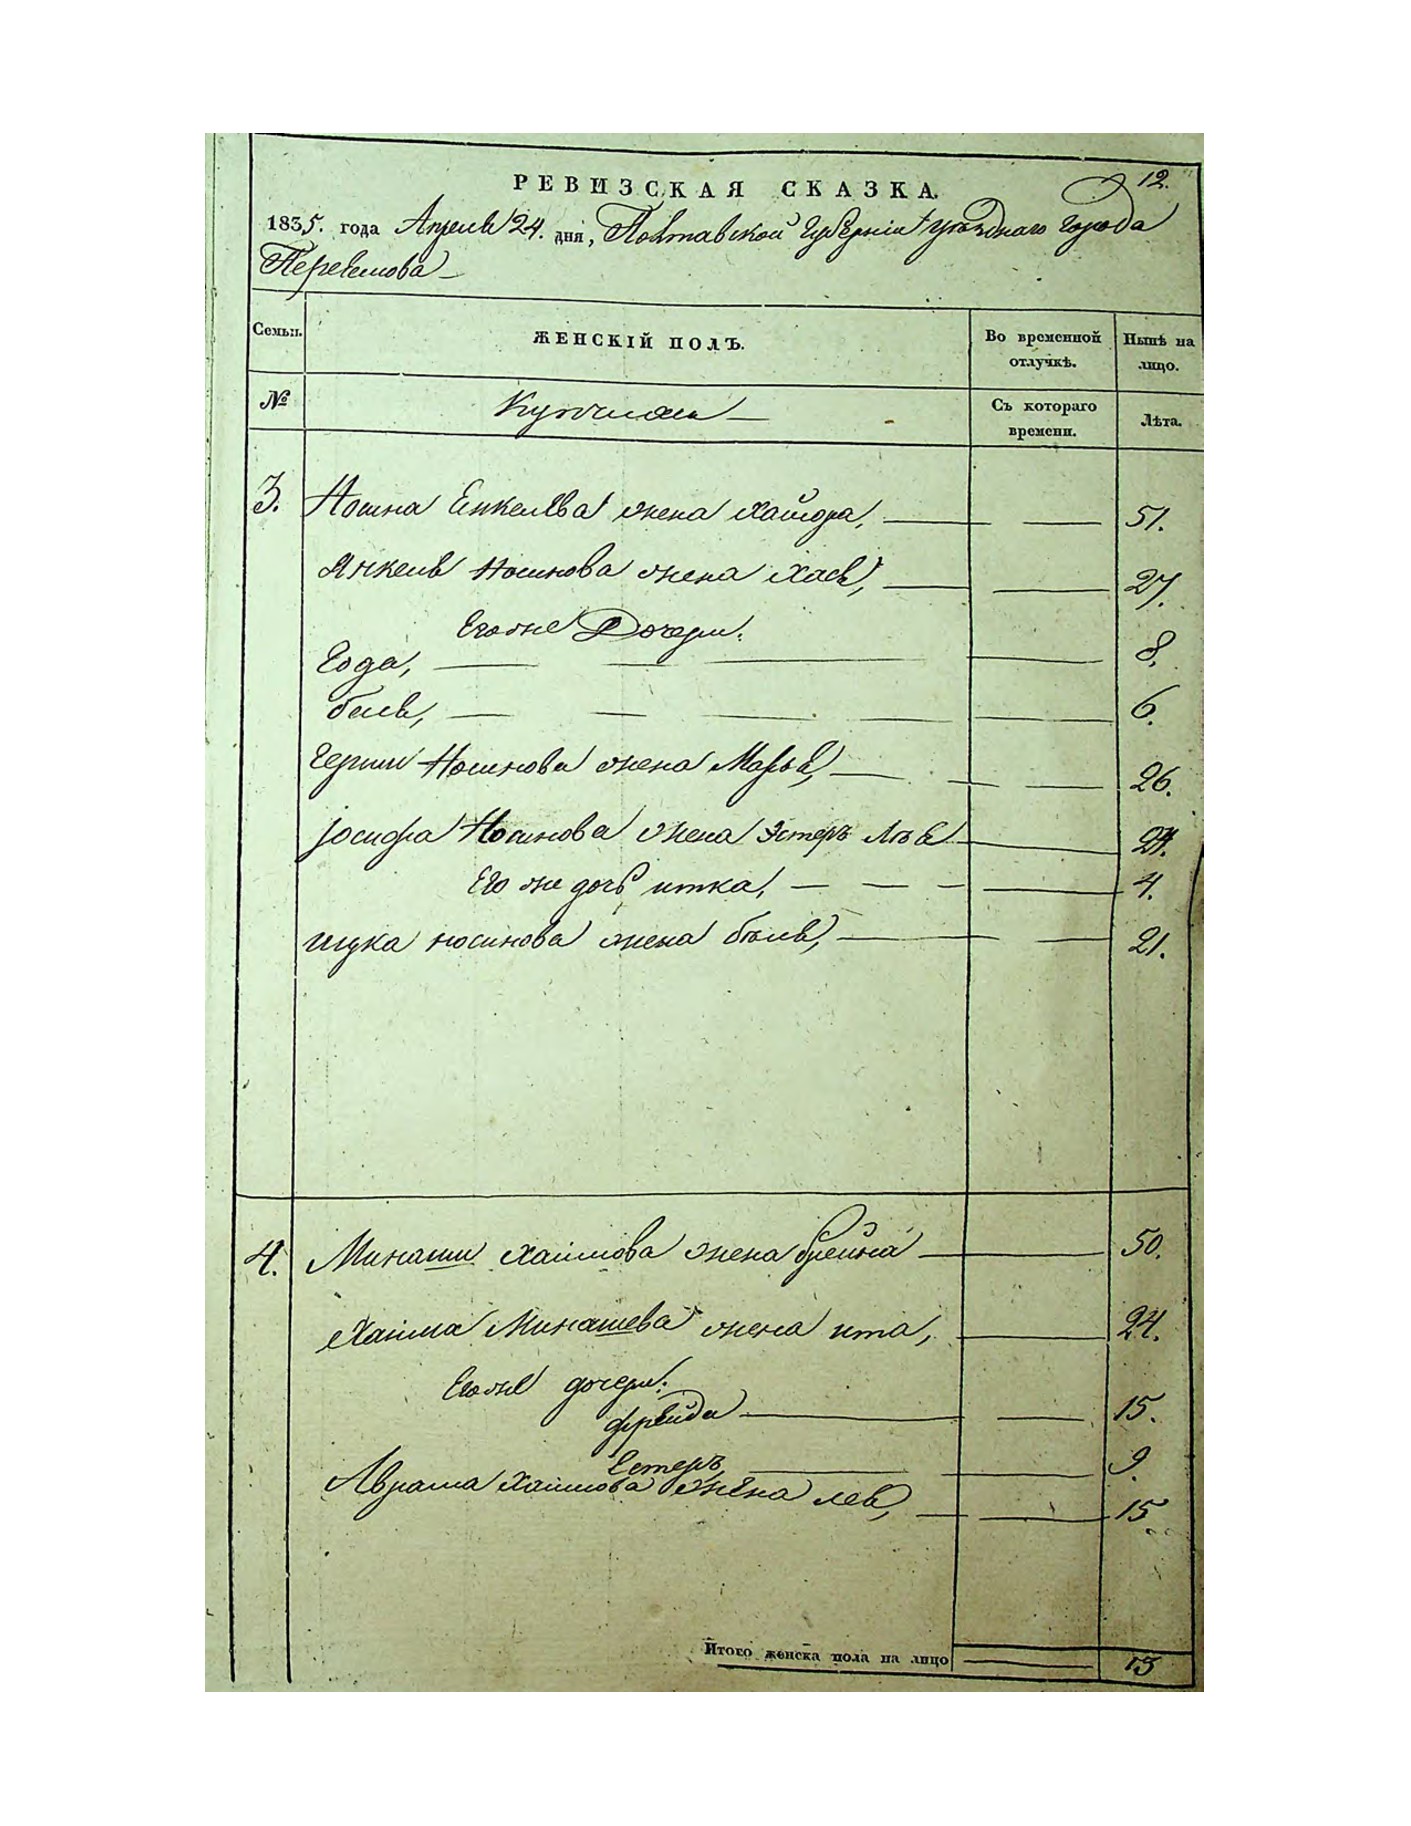 12.
РЕВИЗСКАЯ СКАЗКА.
1835. года Апреля 24. дня, Полтавской Губернiи уѣзднаго города
Семьи.
ЖЕНСКIЙ ПОЛЪ.
Во временной отлучкѣ.
Нынѣ на лицо.
№
Съ котораго времени.
Лѣта.
3. Носина Енкелева жена — — 51.
Янкеля Носинова жена Хася, — — 27.
Его же Дочери:
Года, — — — — 8.
беля, — — — — — 6.
Герши Носинова жена Марья, — — — 26.
Iосифа Носинова жена Эстеръ Лѣя —
Его же дочь итка, — — — — 4.
ицка носинова жена бѣля, — — 21.
4. Минаши Хаимова жена брейна — — 50.
Хаима Минашева жена ита, — 24.
Его же дочери:
фрейда — — 15.
Естеръ — — 9.
Аврама Хаимова жена лея, — — 15
Итого женска пола на лицо — 13